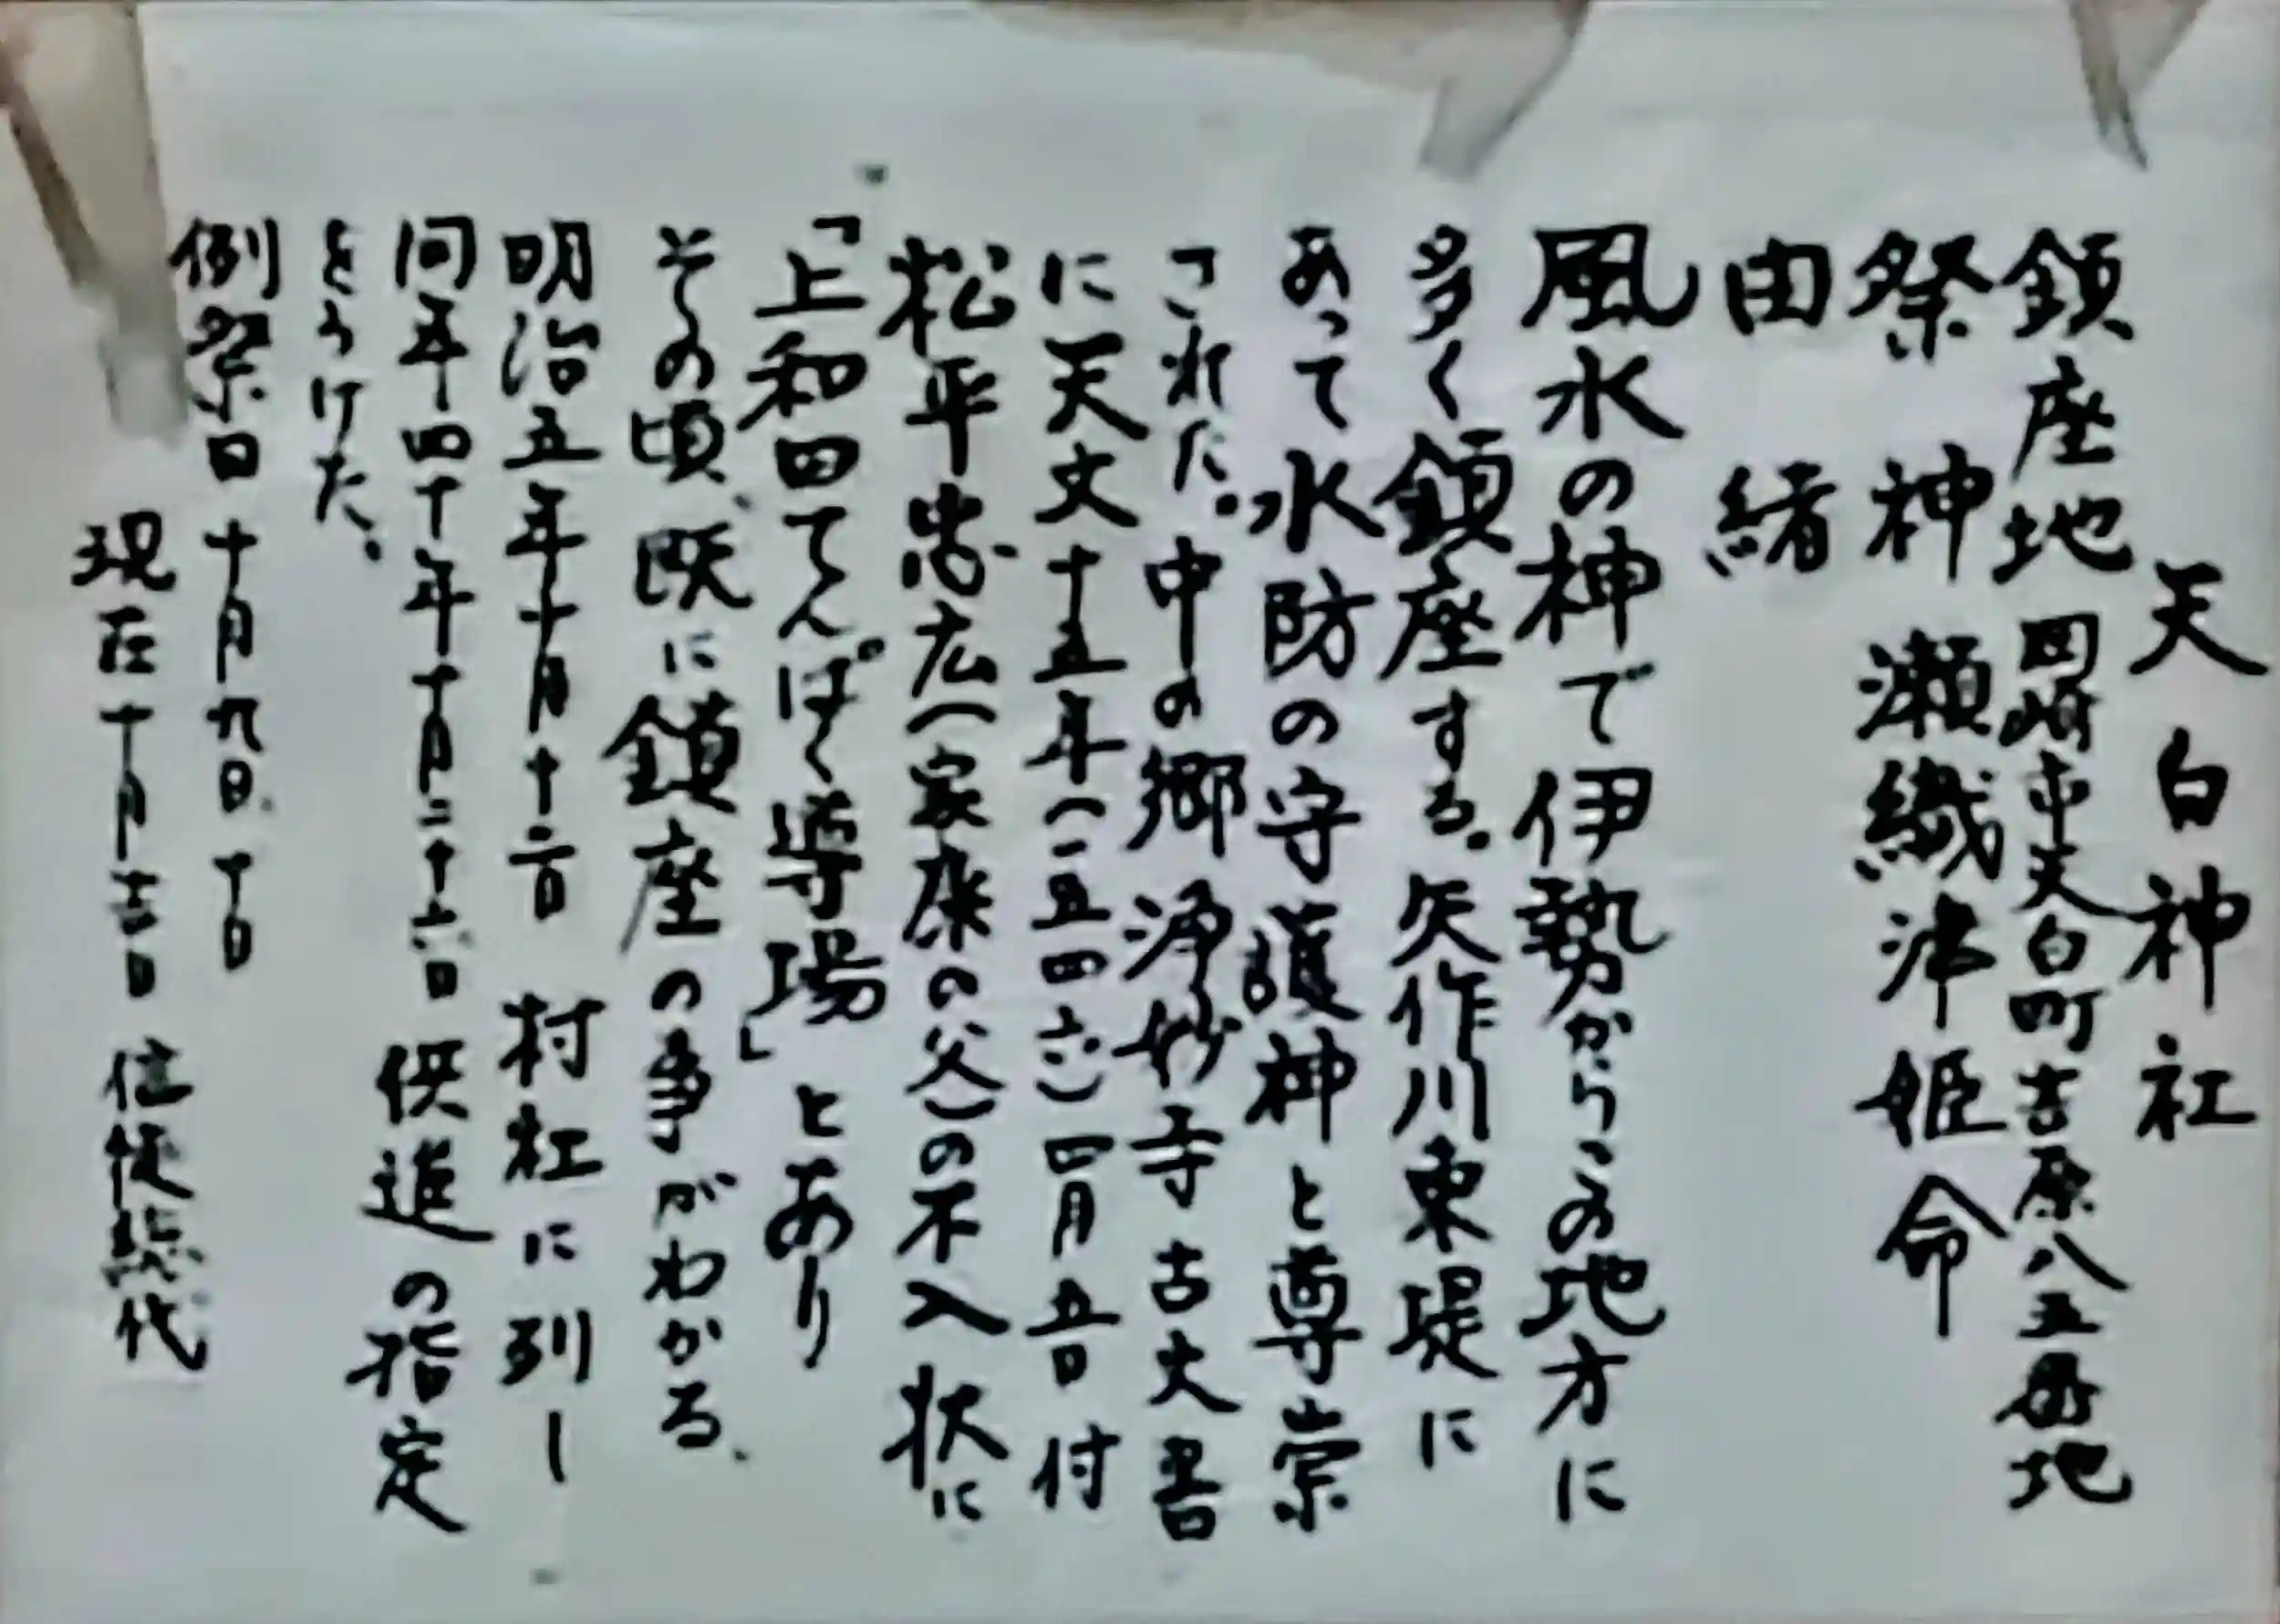 天白神社
鎮座地 岡崎市天白町吉原八五番地
祭神 瀬織津姫命
由緒
風水の神で伊勢からこの地方に
多く鎮座する。矢作川東堤に
あって水防の守護神と尊崇
された。中の郷浄妙寺古文書
に天文十五年(一五四六)四月五日付
松平忠広(家康の父)の不入状に
「上和田てんぱく導場」とあり
その頃、既に鎮座の事がわかる。
明治五年十月十二日 村社に列し
同年四十年十月二十六日 供進の指定
をうけた。
例祭日 十月九日、十日
現在十月 日 総代